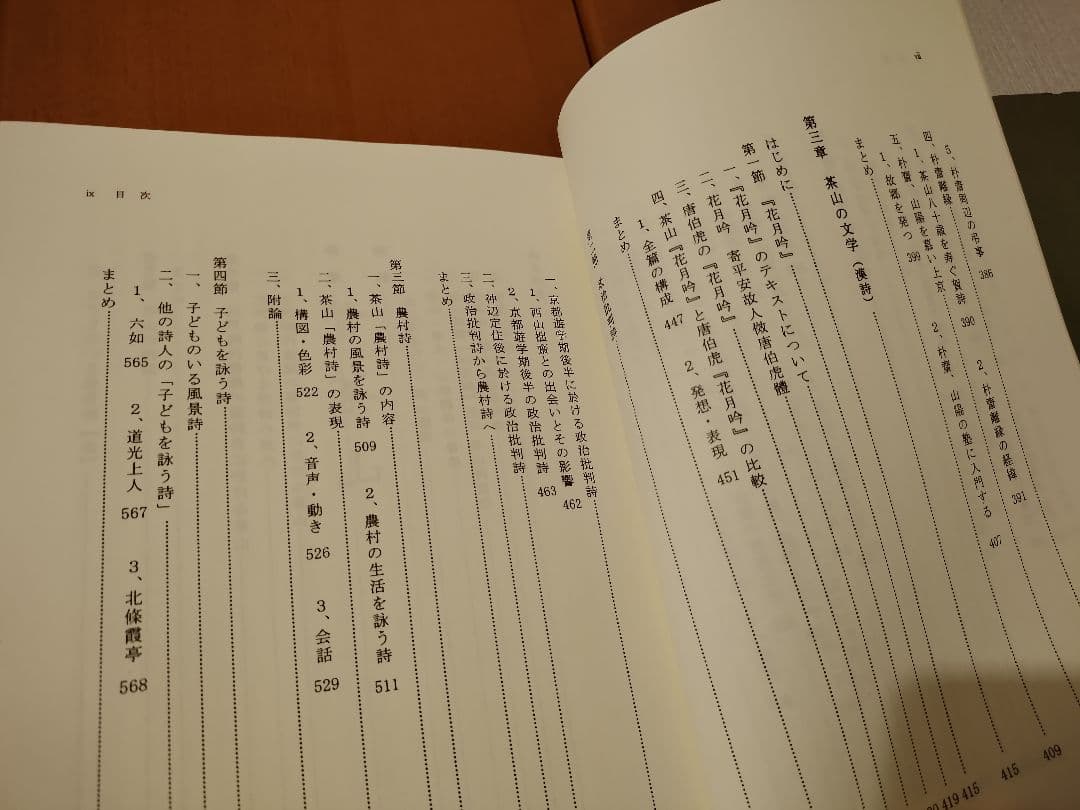 viii
5、朴齋周辺の弔事 386
四、朴齋離縁 2、朴齋離縁の経緯 391
1、茶山八十歳を寿ぐ賀詩 390
五、朴齋、山陽を慕い上京
1、故郷を発つ 399 2、朴齋、山陽の塾に入門する 407
まとめ 409
第三章 茶山の文学（漢詩）
はじめに 415
第一節 『花月吟』 415
一、『花月吟』のテキストについて 419
二、花月吟 寄平安故人倣唐伯虎體
三、唐伯虎の『花月吟』と唐伯虎『花月吟』の比較
四、茶山『花月吟』
1、全篇の構成 447 2、発想・表現 451
まとめ
一、京都遊学期後半に於ける政治批判詩
1、西山拙斎との出会いとその影響 462
2、京都遊学期後半の政治批判詩 463
二、神辺定住後に於ける政治批判詩
三、政治批判詩から農村詩へ
まとめ
第三節 農村詩
一、茶山「農村詩」の内容
1、農村の風景を詠う詩 509 2、農村の生活を詠う詩 511
二、茶山「農村詩」の表現
1、構図・色彩 522 2、音声・動き 526 3、会話 529
三、附論
第四節 子どもを詠う詩
一、子どものいる風景詩
二、他の詩人の「子どもを詠う詩」
1、六如 565 2、道光上人 567 3、北條霞亭 568
まとめ
ix 目次